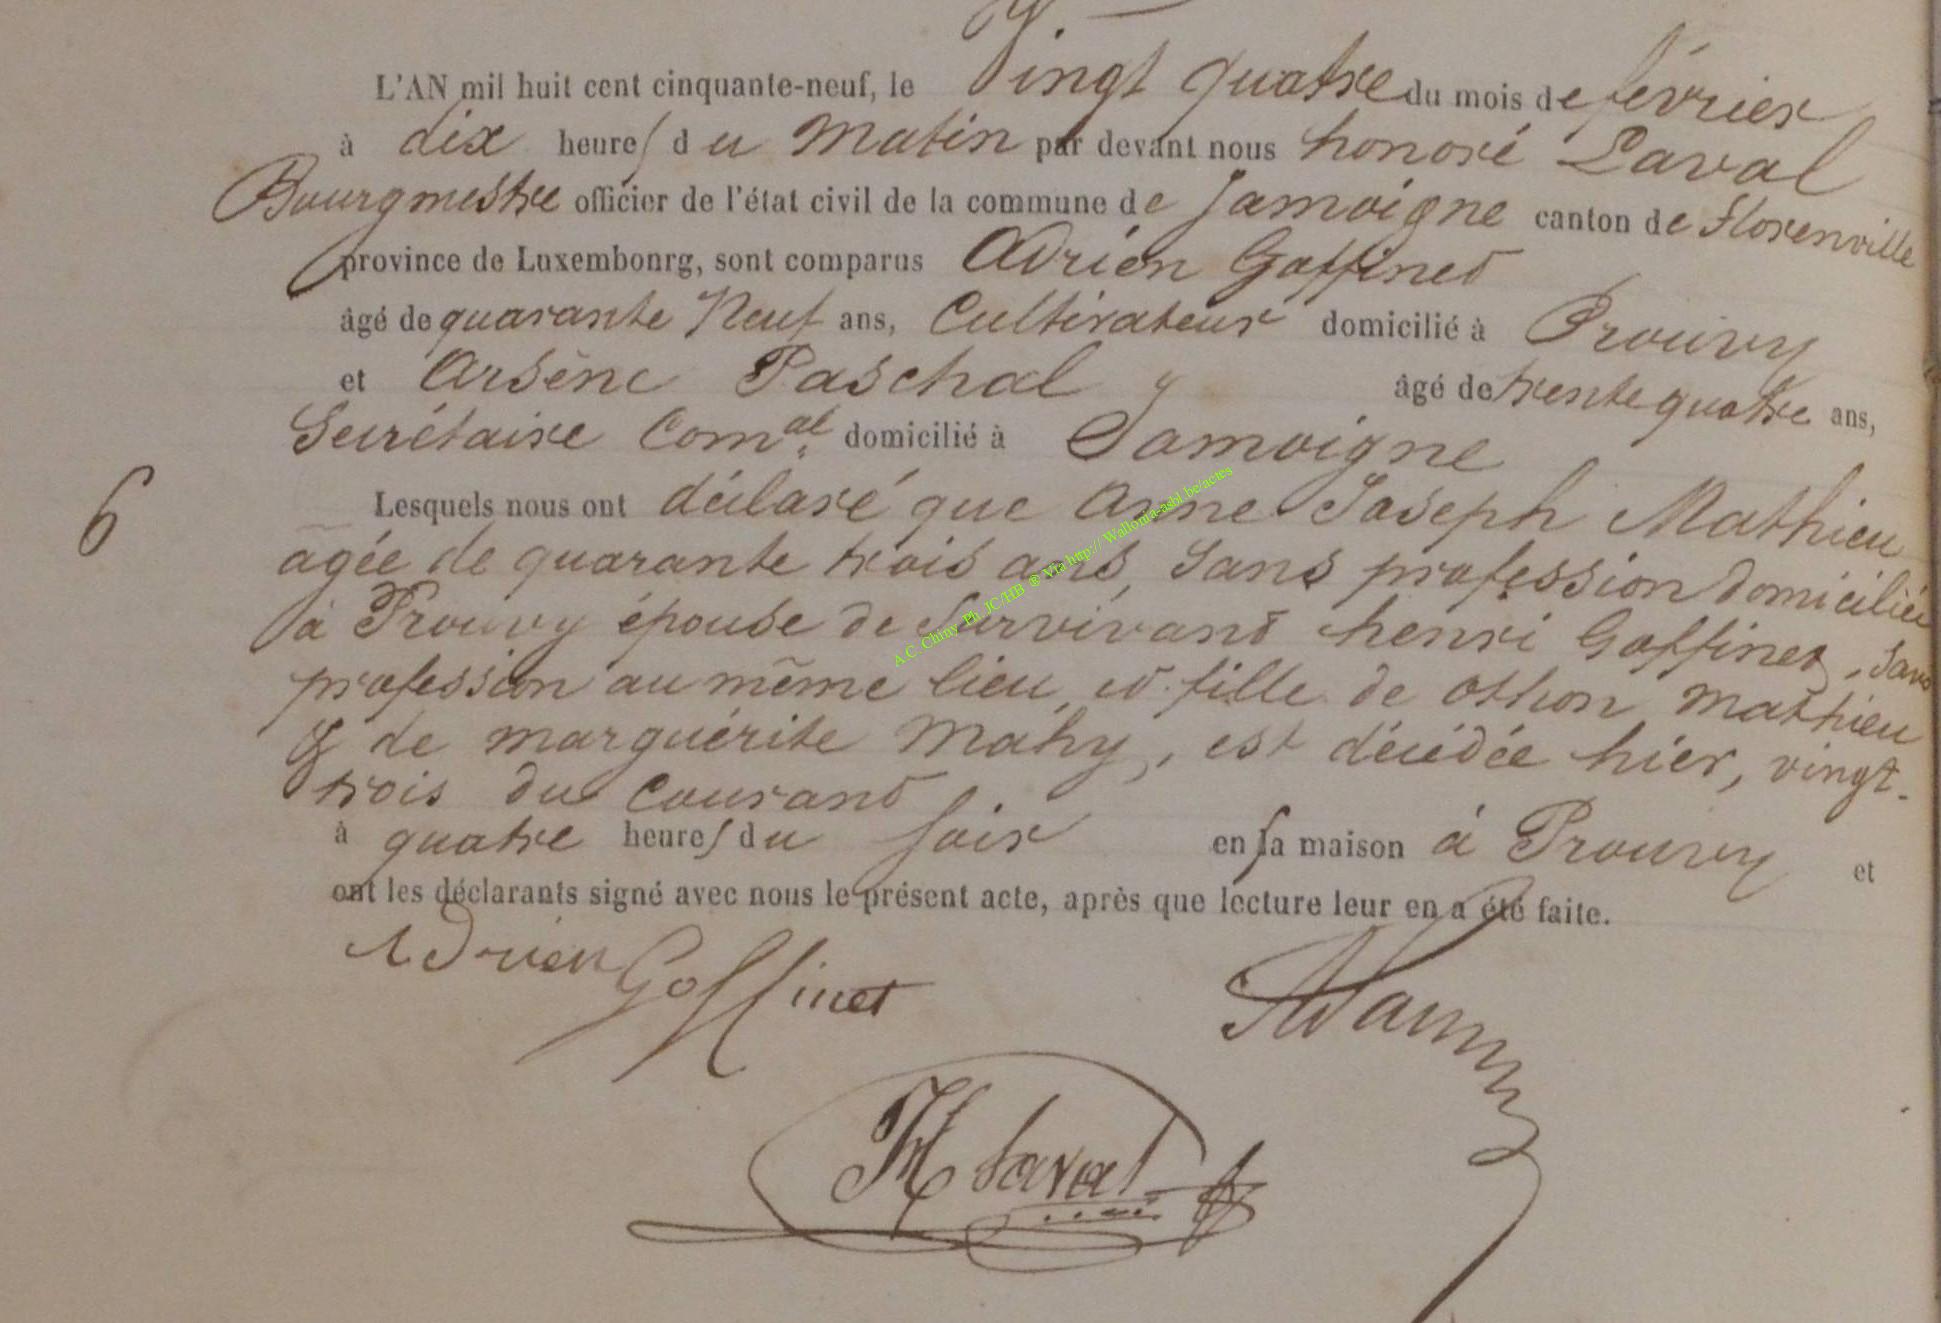 L'AN mil huit cent cinquante-neuf, le Vingt quatre du mois de février
à dix heures du matin par devant nous honoré Laval
Bourgmestre officier de l'état civil de la commune de Jamoigne canton de Florenville
province de Luxembonrg, sont comparus Adrien Goffinet
âgé de quarante Neuf ans, Cultivateur domicilié à Prouvy
et Arsène Paschal âgé de trente quatre ans,
Secrétaire Comal domicilié à Jamoigne
6
Lesquels nous ont déclaré que Anne Joseph Mathieu
agée de quarante trois ans, Sans profession domiciliée
à Prouvy épouse de Survivant henri Goffinet, Sans
profession au même lieu, et fille de Othon Mathieu
& de marguérite Mahy, est décédée hier, vingt-
trois du Courant
à quatre heures du soir en sa maison à Prouvy et
ont les déclarants signé avec nous le présent acte, après que lecture leur en a été faite.
Adrien Goffinet
H Laval
A.C. Chiny Ph. JC/HB ® Via http:// Wallonia-asbl.be/actes